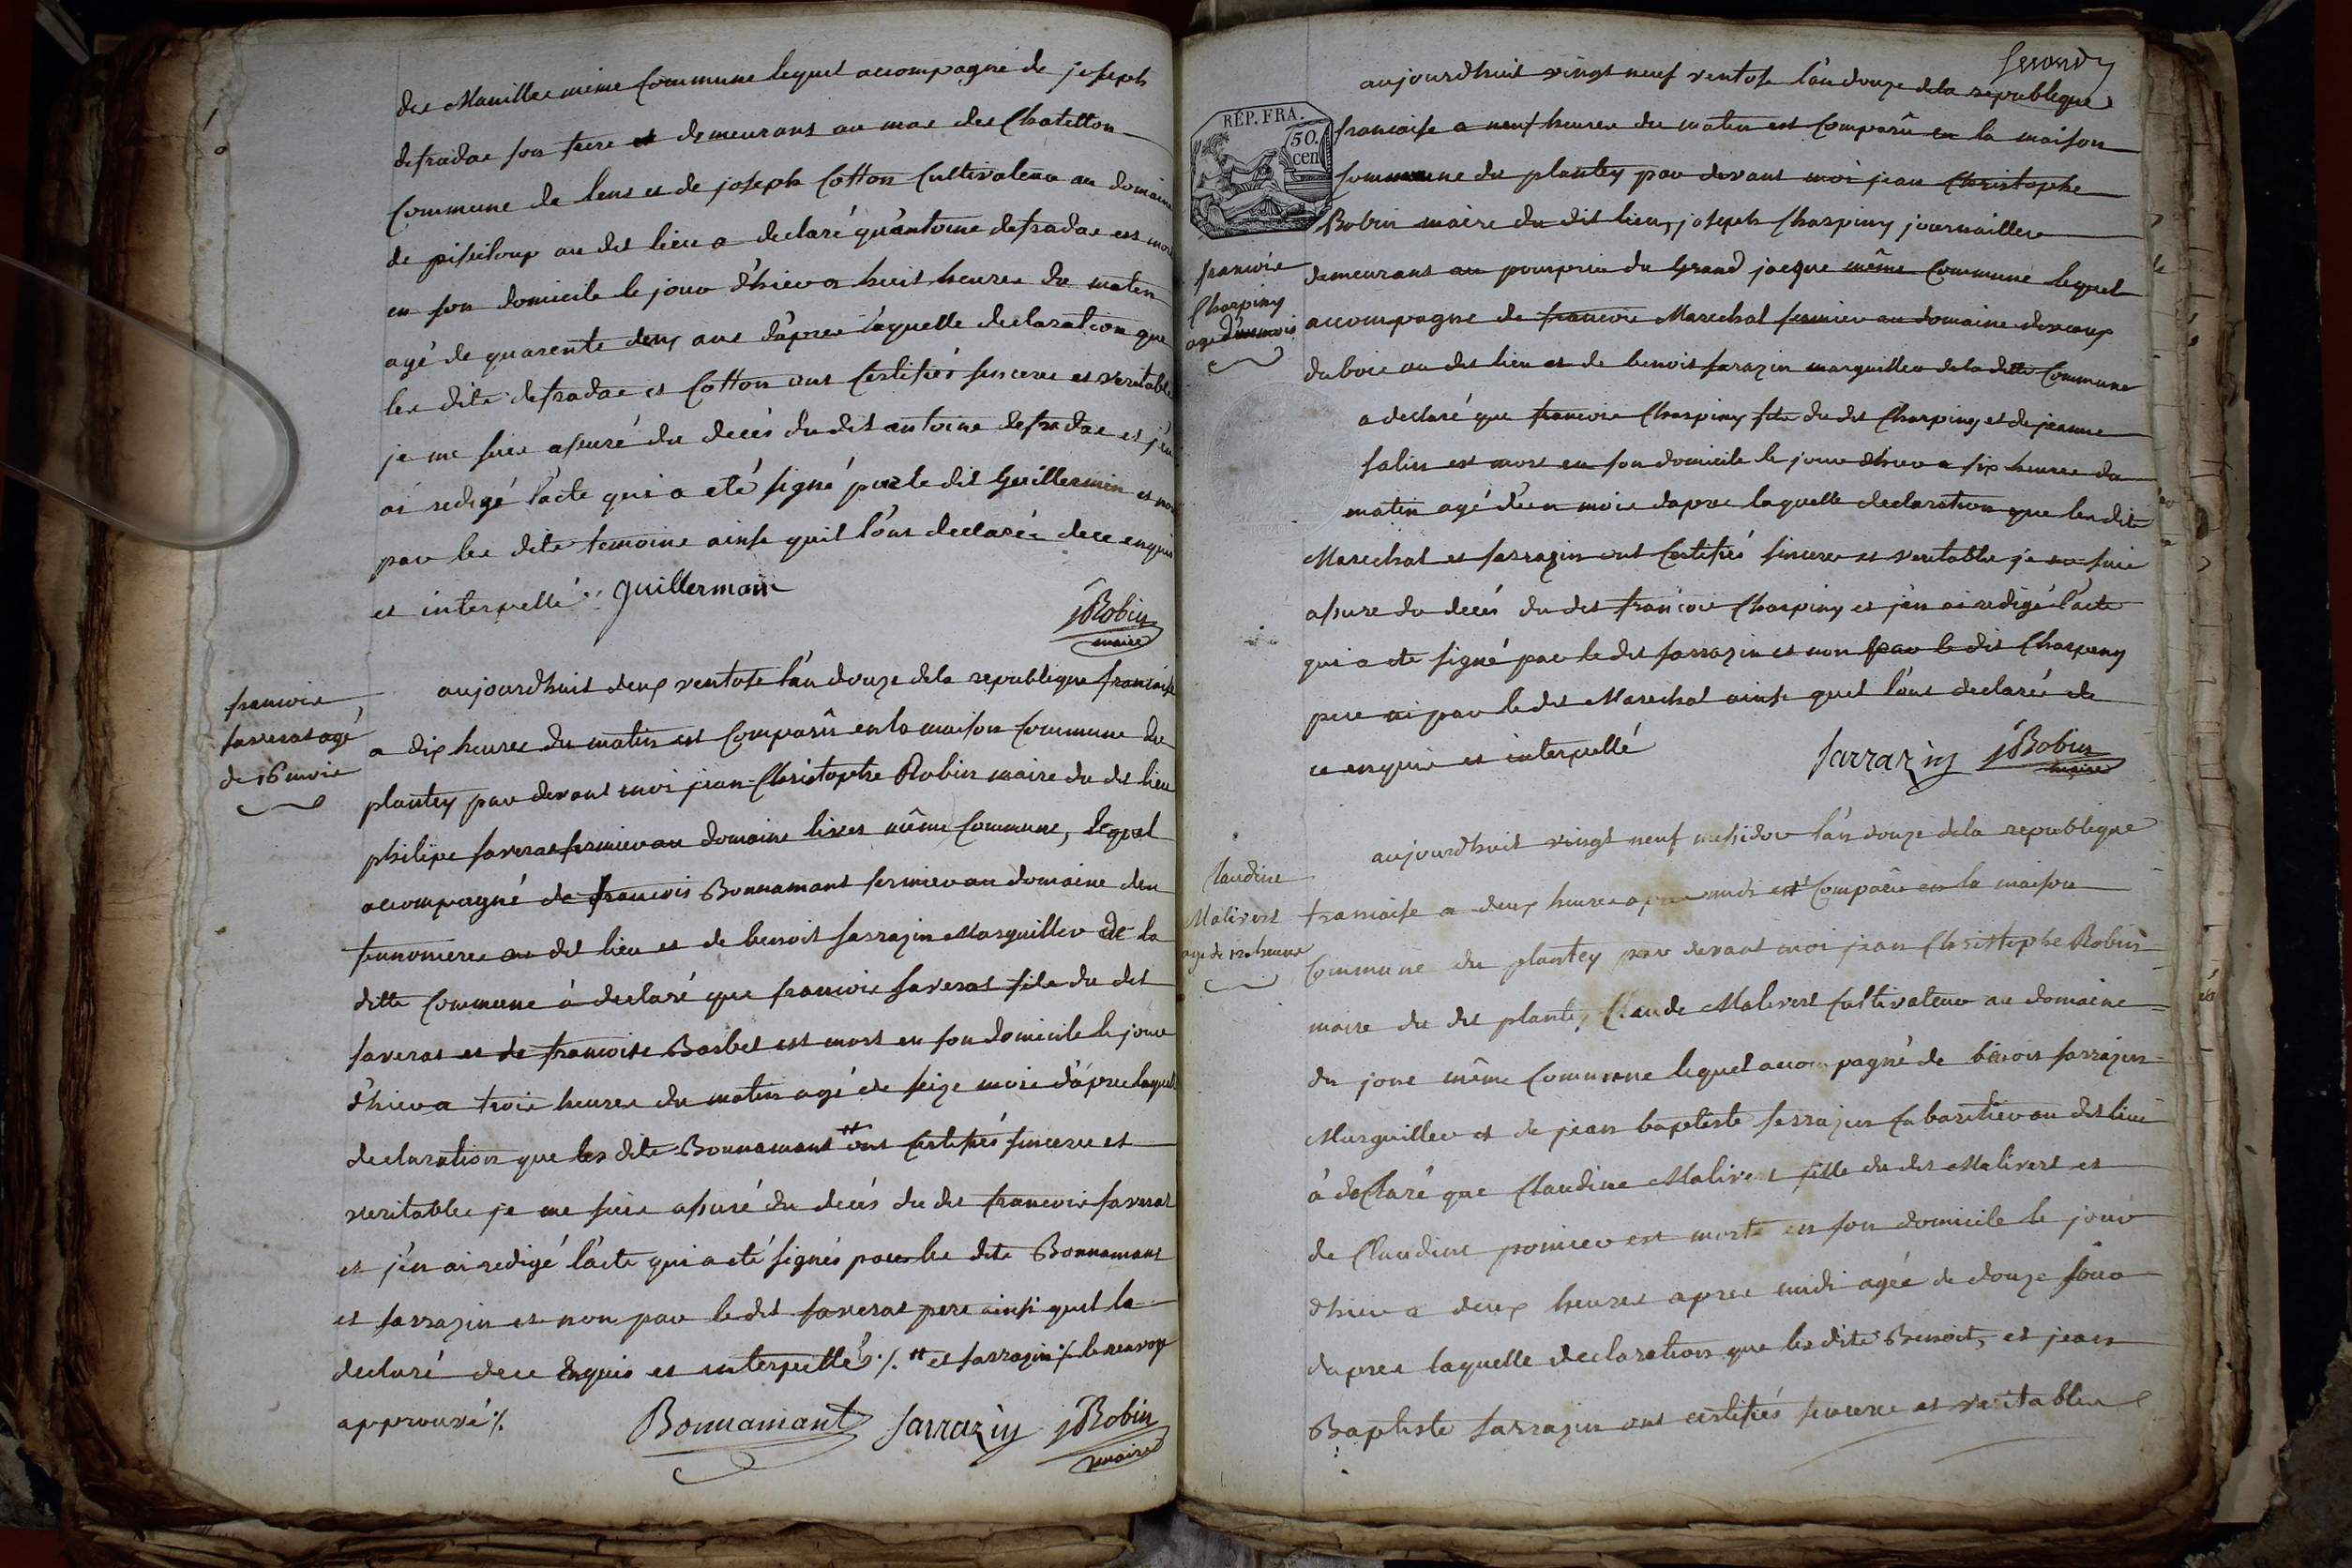 des Manilles même Commune lequel accompagné de joseph
defradas son frere et demeurant au mas des Chatillon
Commune de lent et de joseph Cotton Cultivateur au domaine
de pisseloup au dit lieu a declaré qu'antoine defradas est mort
en son domicile le jour d'hier a huit heures du matin
agé de quarente deux ans d'après laquelle declaration que
les dits defradas et Cotton ont Certifiés sincere et veritable
je me suis assuré du décès du dit antoine defradas et j'en
ai redigé l'acte qui a été signé par le dit Guillermin et non
par les dits temoins ainsi quil l'ont declarés de ce enquis
et interpellé guillermain
jRobin
maire
francois
faverat agé
de 16 mois
aujourdhuit deux ventose l'an douze dela republique francaise
a dix heures du matin est Comparû en la maison Commune du
plantey par devant moi jean Christophe Robin maire du dit lieu
philipe faveras fermier au domaine lixes même Commune, lequel
accompagné de francois Bonnamant fermier au domaine den
au dit lieu et de benoit sarrazin Marguillier de la
ditte Commune à declaré que francois faverat fils du dit
faverat et de francoise Barbet est mort en son domicile le jour
d'hier a trois heures du matin agé de seize mois d'âpres laquelle
declaration que les dits Bonnamant ++ ont Certifiés sincere et
veritable je me suis assuré du décés du dit francois faverat
et j'en ai redigé l'acte qui a eté signés par les dits Bonnamant
et sarrazin et non par le dit faverat pere ainsi quil la
declaré de ce Enquis et interpellé ·/. ++ et sarrazin ·/. le renvoy
approuvé ·/.
Bonnamant Sarrazin jRobin
maire
Second
RÉP. FRA.
50.
cen
aujourdhuit vingt neuf ventose l'an douze dela republique
francaise a neuf heures du matin est Comparû en la maison
Commune du plantey par devant moi jean Christophe
Robin maire du dit lieu, joseph Charpiny journaillier
demeurant au pourprix du Grand jacque même Commune lequel
accompagne de francois Marechal fermier au domaine
du bois au dit lieu et de benoit sarazin marguillier de la ditte Commune
francois
Charpiny
agé d'un mois
a declaré que francois Charpiny fils du dit Charpiny et de jeanne
salin est mort en son domicile le jour d'hier a six heures du
matin agé d'un mois dapres laquelle declaration que les dits
Marechal et sarrazin ont Certifiés sincere et veritable je me suis
assure du decés du dit francois Charpiny et j'en ai redigé l'acte
qui a ete signé par le dit sarrazin et non par le dit Charpiny
pere ni par le dit Marechal ainsi quil l'ont declarés de
ce enquis et interpellé
Sarrazin jRobin
maire
Claudine
Malivert
age de 12 heures
aujourdhuit vingt neuf messidor l'an douze dela republique
francaise a deux heures apres midi est Comparu en la maison
Commune du plantey par devant moi jean Christophe Robin
maire du dit plantey, Claude Malivert Cultivateur au domaine
du jone même Commune lequel accompagné de bénoit sarrazin
Marguillier et de jean baptiste sarrazin Cabaretier au dit lieu
à declaré que Claudine Malivert fille du dit Malivert et
de Claudine pomier est morte en son domicile le jour
d'hier a deux heures apres midi agée de douze jour
dapres laquelle declaration que les dits Benoit, et jean
Baptiste sarrazin ont certifiés sincere et veritable